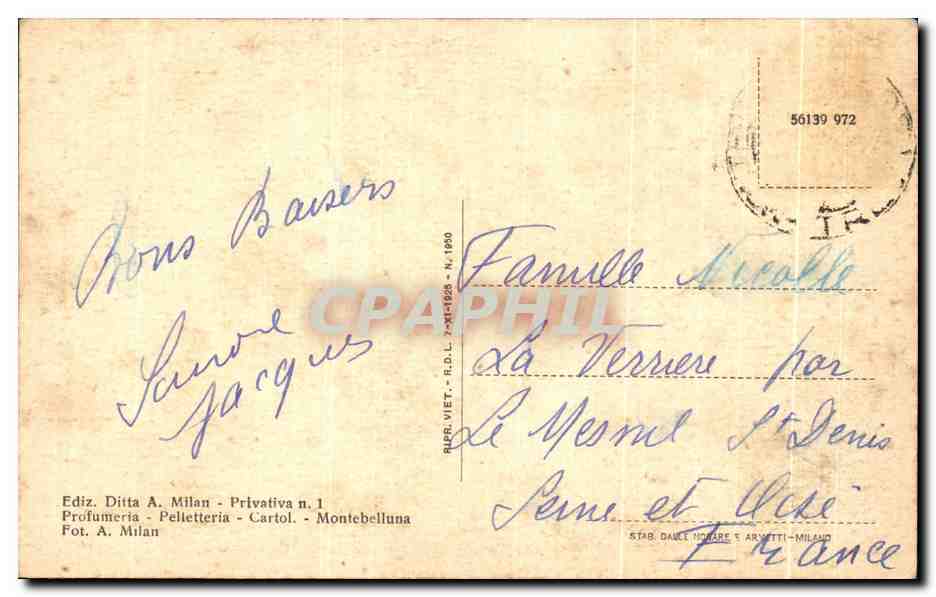 56139 972
Bons Baisers
Jacques
Famille Nicolle
La Verriere par
Le Mesnil St Denis
Seine et Oise
France
RIPR. VIET. - R.D.L. 7-XI-1925 - N. 1950
CPAPHIL
Ediz. Ditta A. Milan - Privativa n. 1
Profumeria - Pelletteria - Cartol. - Montebelluna
Fot. A. Milan
STAB. DALLE NOGARE E ARMETTI - MILANO